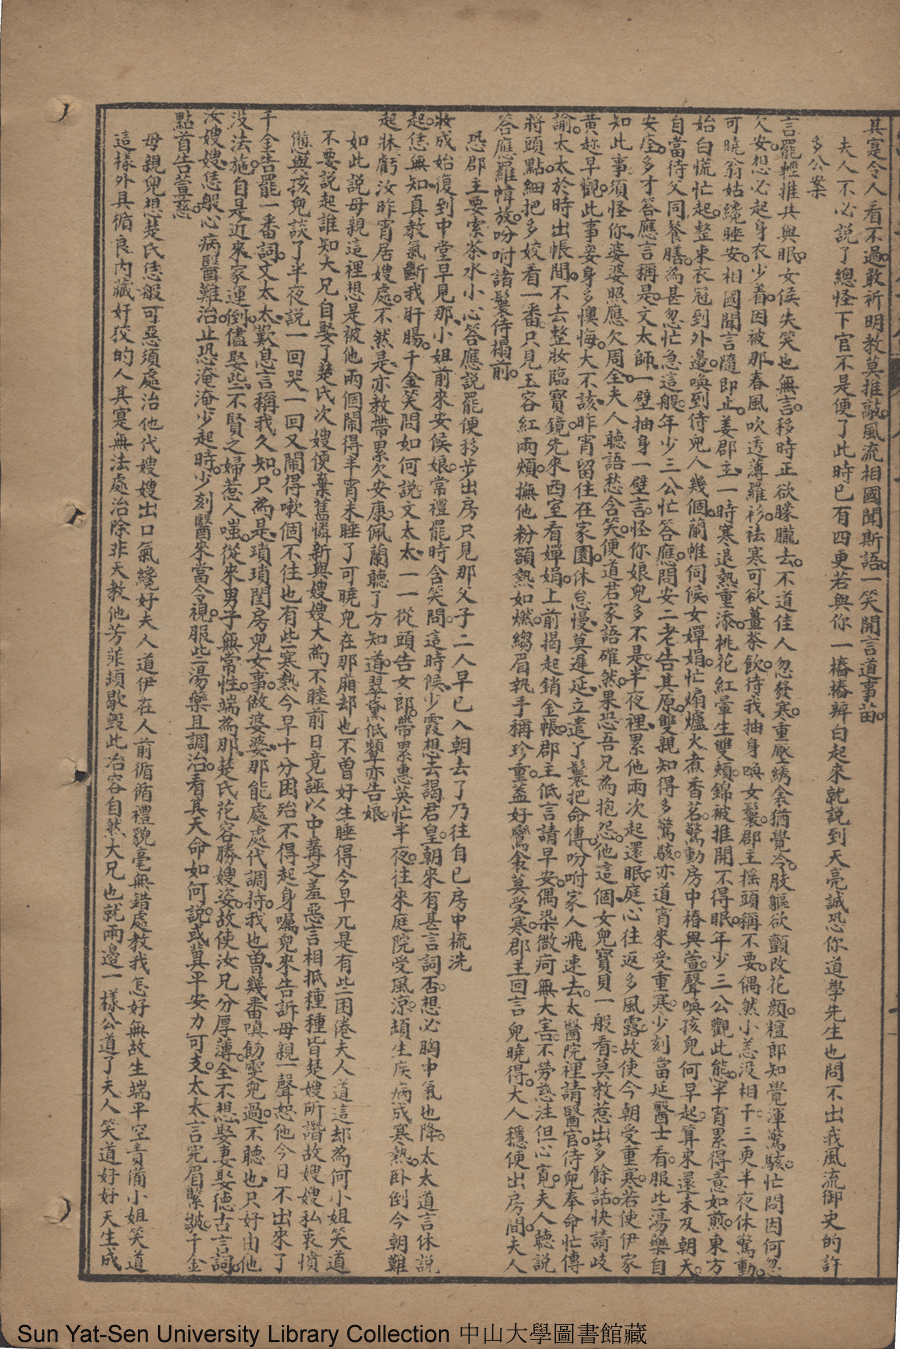 其寔令人看不過。敢祈明教莫推敲。風流相國聞斯語。一笑開言道事苗。
夫人不必說了總怪下官不是便了此時已有四更若與你一樁樁辨白起來就說到天亮誠恐你道學先生也問不出我風流御史的許
多公案
言罷輕推共與眠。女侯失笑也無言。移時正欲朦朧去。不道佳人忽發寒。重壓綉衾猶覺冷。肢軀欲顫改花顏。檀郎知覺渾驚駭。忙問因何忽
欠安。想必起身衣少着。因被那春風吹透薄羅衫。祛寒可飲薑茶飲。待我抽身喚女鬟。郡主摇頭稱不要。偶然小恙没相干。三更半夜休驚動。
可曉翁姑纔睡安。相國聞言隨即止。姜郡主一時寒退熱重添。桃花紅暈生雙頰。錦被推開不得眠。年少三公觀此態。半宵累得意如煎。東方
始白慌忙起。整束衣冠到外邊。喚到待兒人幾個。蘭帷伺候女嬋娟。忙煽爐火煮香茗。驚動房中椿與萱。聲喚孩兒何早起。算來還未及朝天。
自當待父同餐膳。為甚忽忙急這般。年少三公忙答應。問安二老告其原。雙親知得多驚駭。亦道宵來受重寒。少刻當延醫士看。服此湯藥自
安痊。多才答應言稱是。文太師一壁抽身一壁言。怪你娘兒多不是。半夜裡累他兩次起還眠。庭心往返多風露。故使今朝受重寒。若使伊家
知此事。須怪你婆婆照應欠周全。夫人聽語愁含笑。便道君家語確然。果恐吾兒為抱怨。他這個女兒寶貝一般看。莫教惹出多餘話。快請岐
黄妙早觀。此事妾身多懊悔。大不該昨宵留住在家園。休怠慢。莫遲延。立遣了鬟把命傳。吩咐家人飛速去。太醫院裡請醫官。侍兒奉命忙傳
諭。太太於時出帳間。不去整妝臨寶鏡。先來西室看嬋娟。上前揭起銷金帳。郡主低言請早安。偶染微疴無大害。不勞慈注但心寬。夫人聽說
將頭點。細把多姣看一番。只見玉容紅兩頰。撫他粉額熱如燃。縐眉執手稱珍重。蓋好鸞衾莫受寒。郡主回言兒曉得。大人穩便出房間。夫人
答應羅幃放。吩咐諸鬟侍榻前。
恐郡主要索茶水小心答應說罷便移步出房只見那父子二人早已入朝去了乃往自已房中梳洗
妝成始復到中堂。早見那小姐前來安候娘。常禮罷時含笑問。這時候少霞想去謁君皇。朝來有甚言詞否。想必胸中氣也降。太太道言休說
起。恁無知真教氣斷我肝腸。千金笑問如何說。文太太一一從頭告女郎。帶累惠英忙半夜。往來庭院受風涼。頃生疾病或寒熱。卧倒今朝難
起牀。虧汝昨宵居嫂處。不然是亦教帶累欠安康。佩蘭聽了方知道。翠黛低颦亦告娘。
如此說母親這裡想是被他兩個鬧得半宵未睡了可曉兒在那廂却也不曾好生睡得今早兀是有些困倦夫人道這却為何小姐笑道
不要說起誰知大兄自娶了楚氏次嫂便棄舊憐新與嫂嫂大為不睦前日竟誣以中冓之羞惡言相抵種種皆楚嫂所譖故嫂嫂私衷憤
懣與孩兒談了半夜說一回哭一回又鬧得嗽個不住也有些寒熱今早十分困殆不得起身囑兒來告訴母親一聲恕他今日不出來了
千金告罷一番詞。文太太歎息言稱我久知。只為是瑣瑣閨房兒女事。做婆婆那能處處代調持。我也曾幾番嗔飭霞兒過。不聽也只好由他
没法施。自是近來家運倒。儘娶些不賢之婦惹人嗤。從來男子無常性。端為那楚氏花容勝嫂姿。故使汝兄分厚薄。全不想娶妻娶德古言詞。
汝嫂嫂恁般心病醫難治。止恐淹淹少起時。少刻醫來當令視。服些湯藥且調治。看其天命如何說。或冀平安力可支。太太言完眉緊皺。千金
點首告萱慈
母親兒想楚氏恁般可惡須處治他代嫂嫂出口氣纔好夫人道伊在人前循循禮貌毫無錯處教我怎好無故生端平空責備小姐笑道
這樣外具循良内藏奸狡的人其寔無法處治除非天教他芳菲頓歇毀此冶容自然大兄也就兩邊一樣公道了夫人笑道好好天生成
Sun Yat-Sen University Library Collection 中山大學圖書館藏